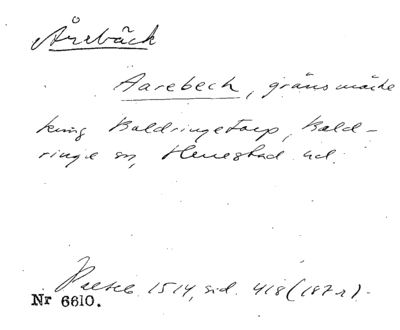 Årebäck
Aarebech, gränsmärke
kring Baldringetorp, Bald-
ringe sn, Herrestad hd.
1514, sid. 418 (187 r).
Nr 6610.